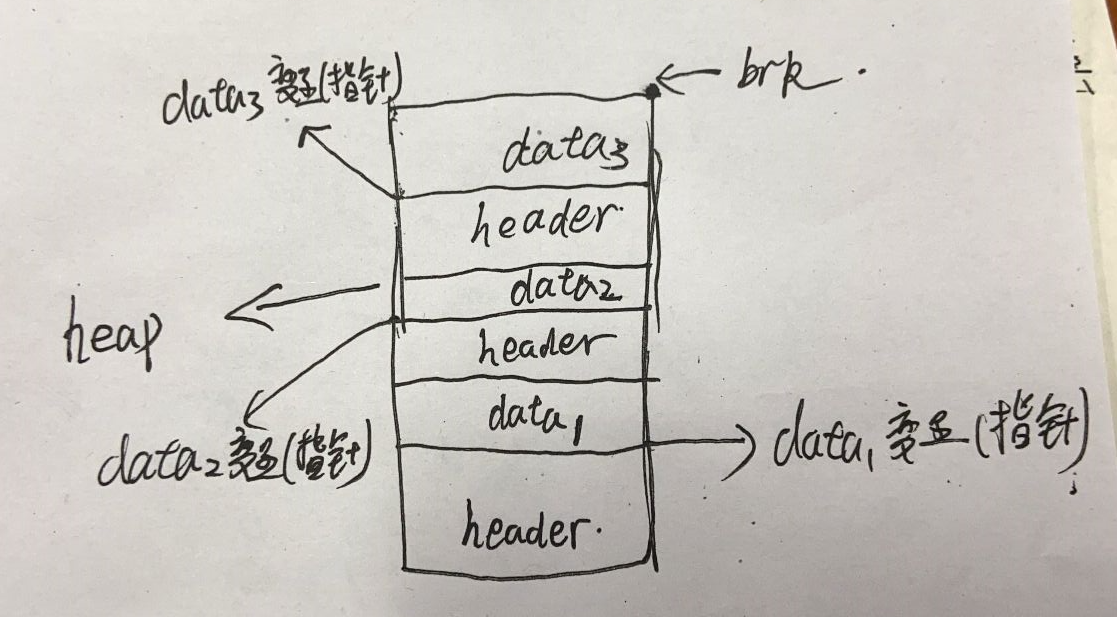 data3 变量(指针)
brk.
data3
header.
data2
heap
header
data1
data2 变量(指针)
data1 变量(指针)
header.